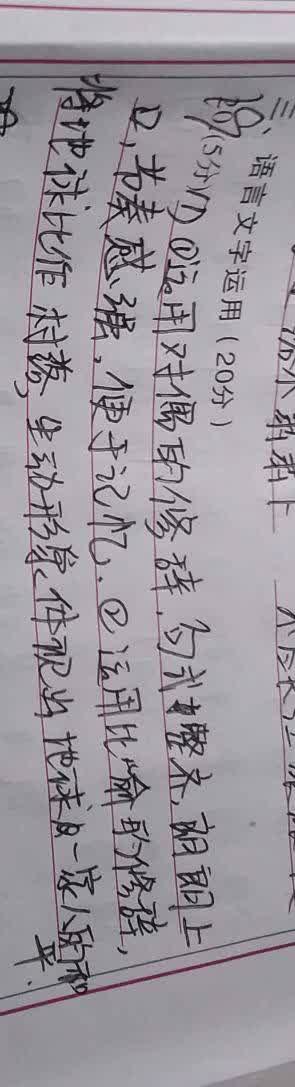 三、语言文字运用（20分）
18.(5分)(1) ①运用对偶的修辞,句式整齐,朗朗上
口,节奏感强,便于记忆.②运用比喻的修辞,
将地球比作村落,生动形象,体现出地球是一家人的和
平.